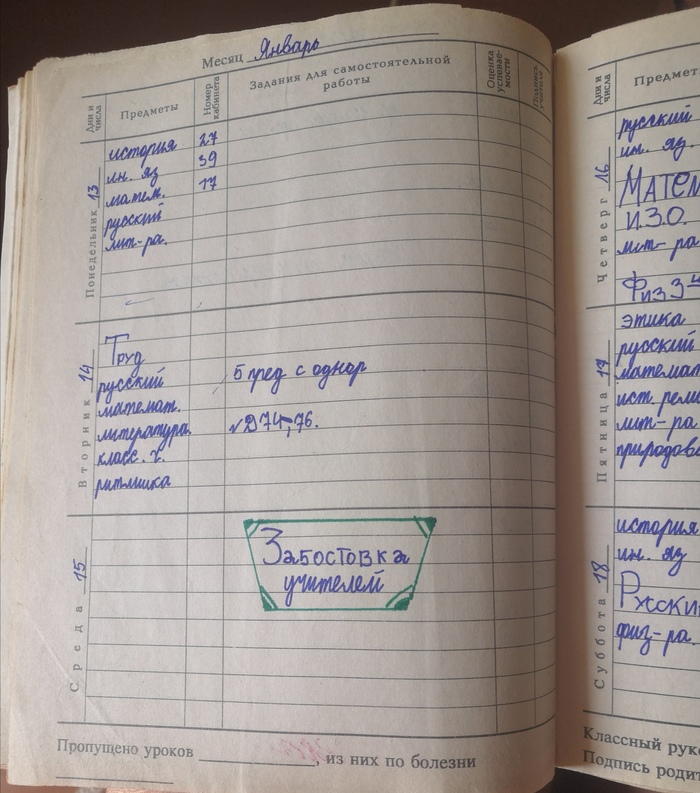 Месяц Январь
Дни и числа
Предметы
Номер кабинета
Задания для самостоятельной работы
Оценка успеваемости
Подпись учителя
Понедельник 13
история 27
ин. яз 39
матем. 17
русский
лит-ра.
Вторник 14
Труд
русский 5 пред с однор
математ.
литература. №D74,76.
класс. ч.
ритмика
Среда 15
Забостовка
учителей
Пропущено уроков , из них по болезни
Дни и числа
Предмет
Четверг 16
русский
ин. яз.
Матем
ИЗО.
лит-ра
Физ
Пятница 17
этика
русский
математ
ист. рели
лит-ра
природов
Суббота 18
история
ин. яз
Русски
физ-ра.
Классный руко
Подпись родит